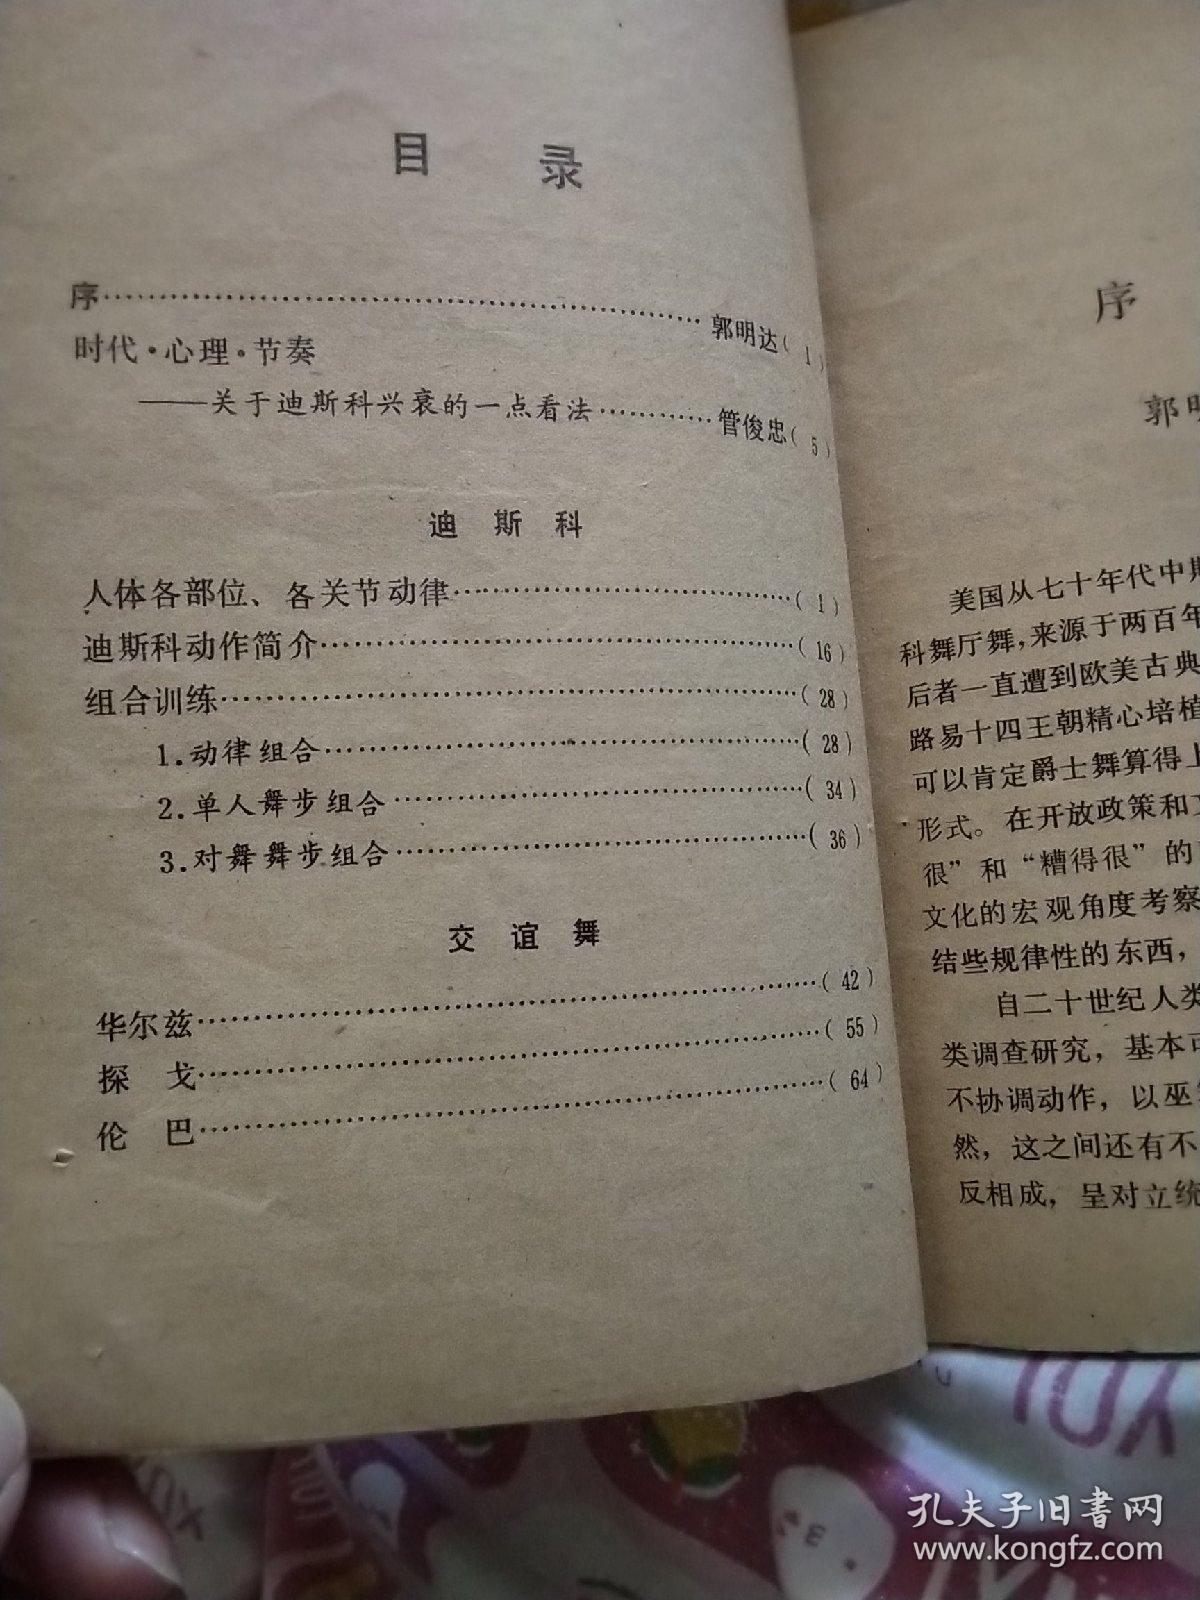 目 录
序……………………………………………郭明达(1)
时代·心理·节奏
——关于迪斯科兴衰的一点看法…………管俊忠(5)
迪 斯 科
人体各部位、各关节动律……………………………(1)
迪斯科动作简介………………………………………(16)
组合训练………………………………………………(28)
1.动律组合……………………………………………(28)
2.单人舞步组合………………………………………(34)
3.对舞舞步组合………………………………………(36)
交 谊 舞
华尔兹…………………………………………………(42)
探 戈…………………………………………………(55)
伦 巴…………………………………………………(64)
序
郭明
美国从七十年代中期
科舞厅舞，来源于两百年
后者一直遭到欧美古典
路易十四王朝精心培植
可以肯定爵士舞算得上
形式。在开放政策和
很”和“糟得很”的
文化的宏观角度考察
结些规律性的东西，
自二十世纪人类
类调查研究，基本可
不协调动作，以巫
然，这之间还有不
反相成，呈对立统
YOU
孔夫子旧书网
www.kongfz.com